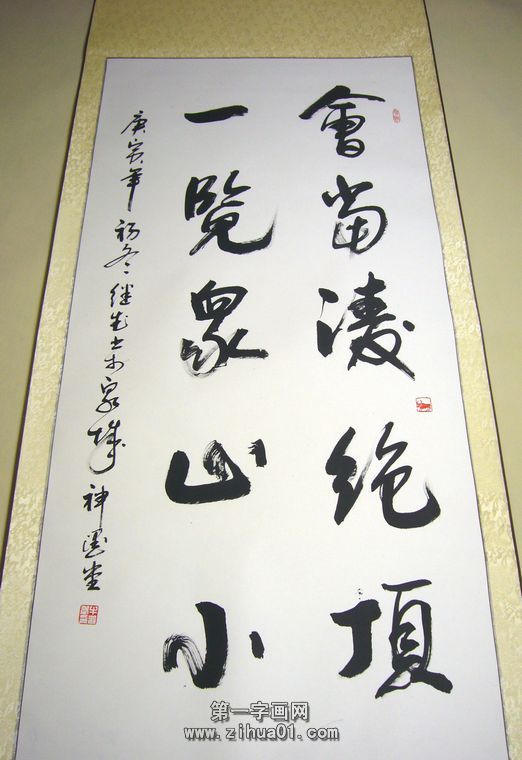 會當凌絶頂
一覽衆山小
庚寅年初冬继先书於泉城神墨堂
第一字画网
www.zihua01.com